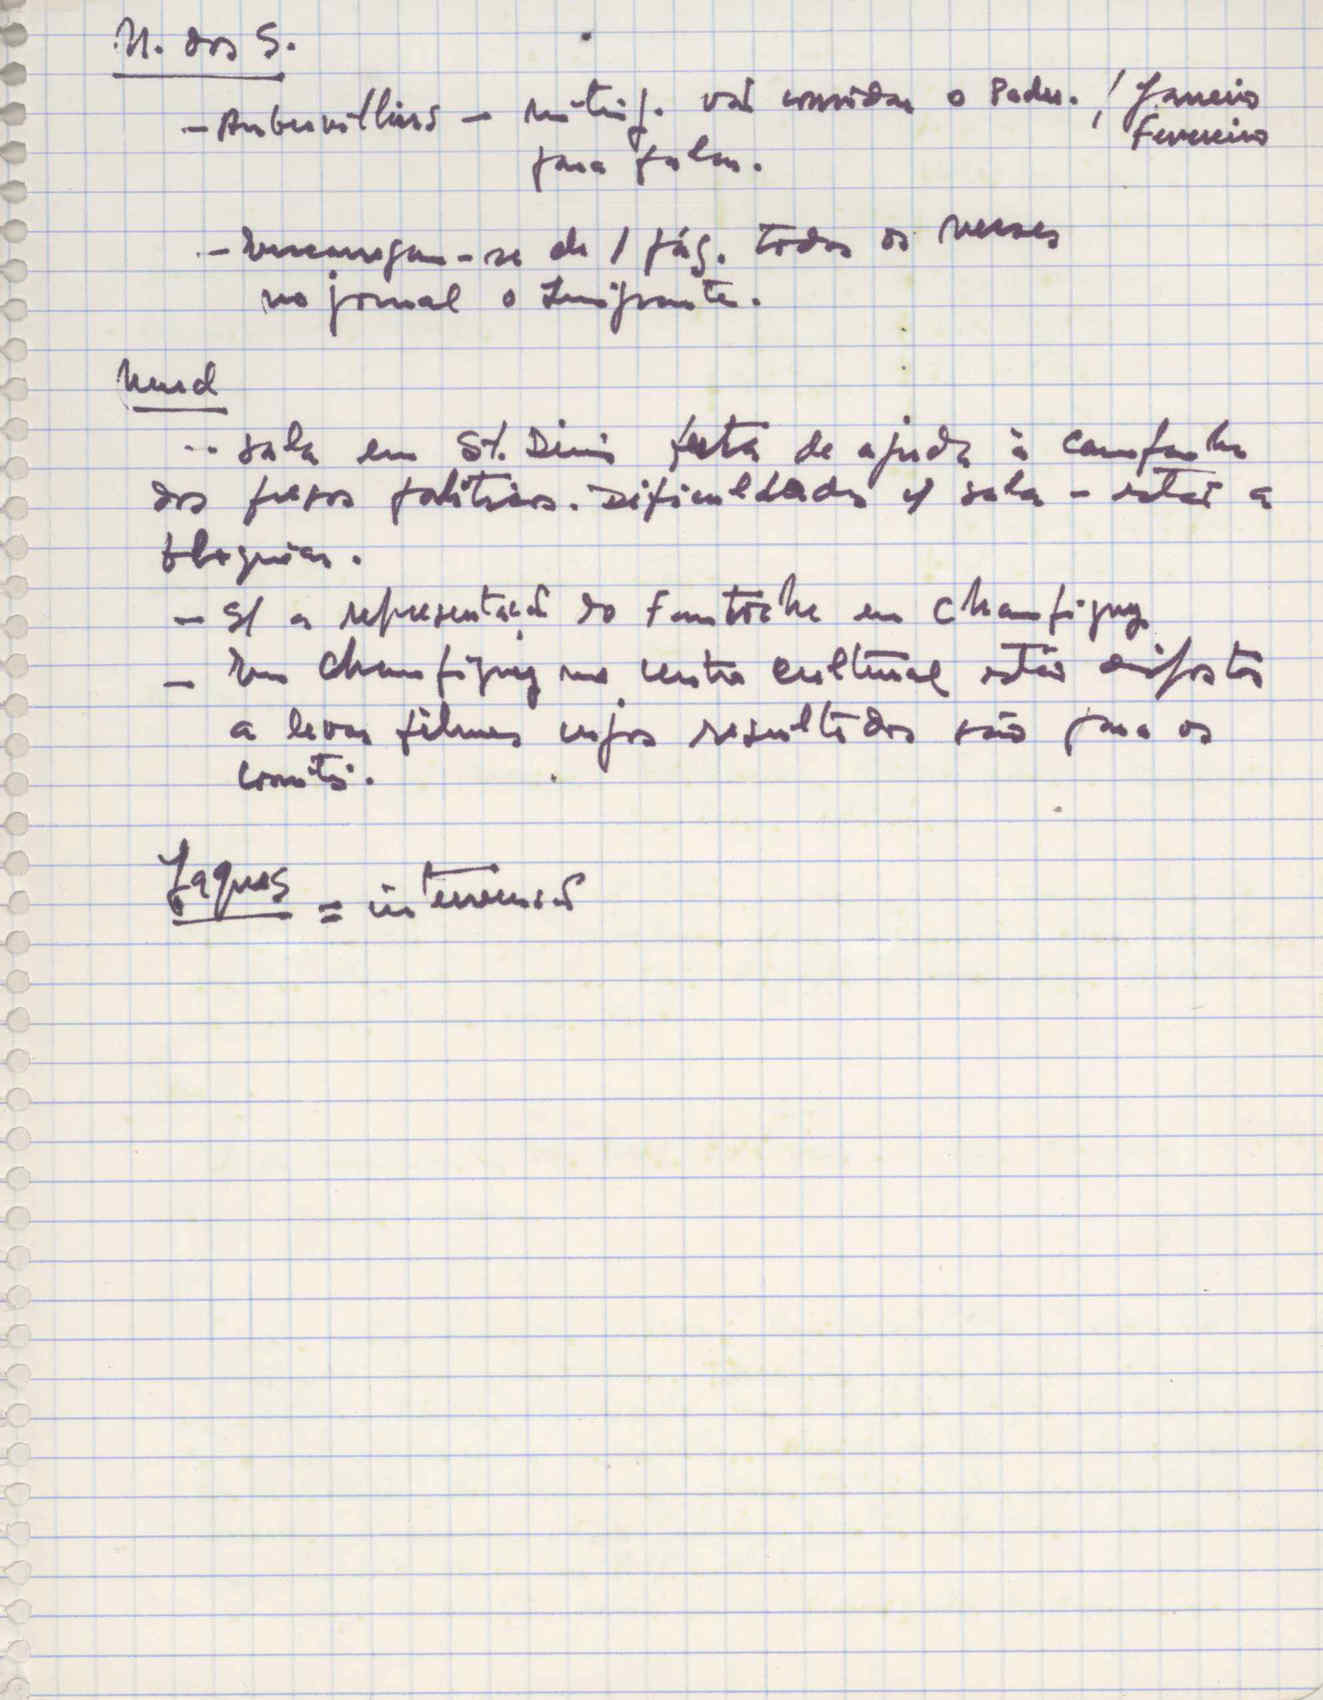 M. dos S.
- Aubervilliers - míting. vão convidar o Padre. / Janeiro
Fevereiro
para falar.
- Encarregam-se de 1 pág. todos os meses
no jornal o Emigrante.
- sala em St. Denis festa de ajuda à campanha
dos presos políticos. Dificuldades c/ sala - estão a
bloquear.
- S/ a representação do Fantoche em Champigny
- Em Champigny no centro cultural estão dispostos
a levar filmes cujos resultados são para os
comités.
Jaques = intervenção